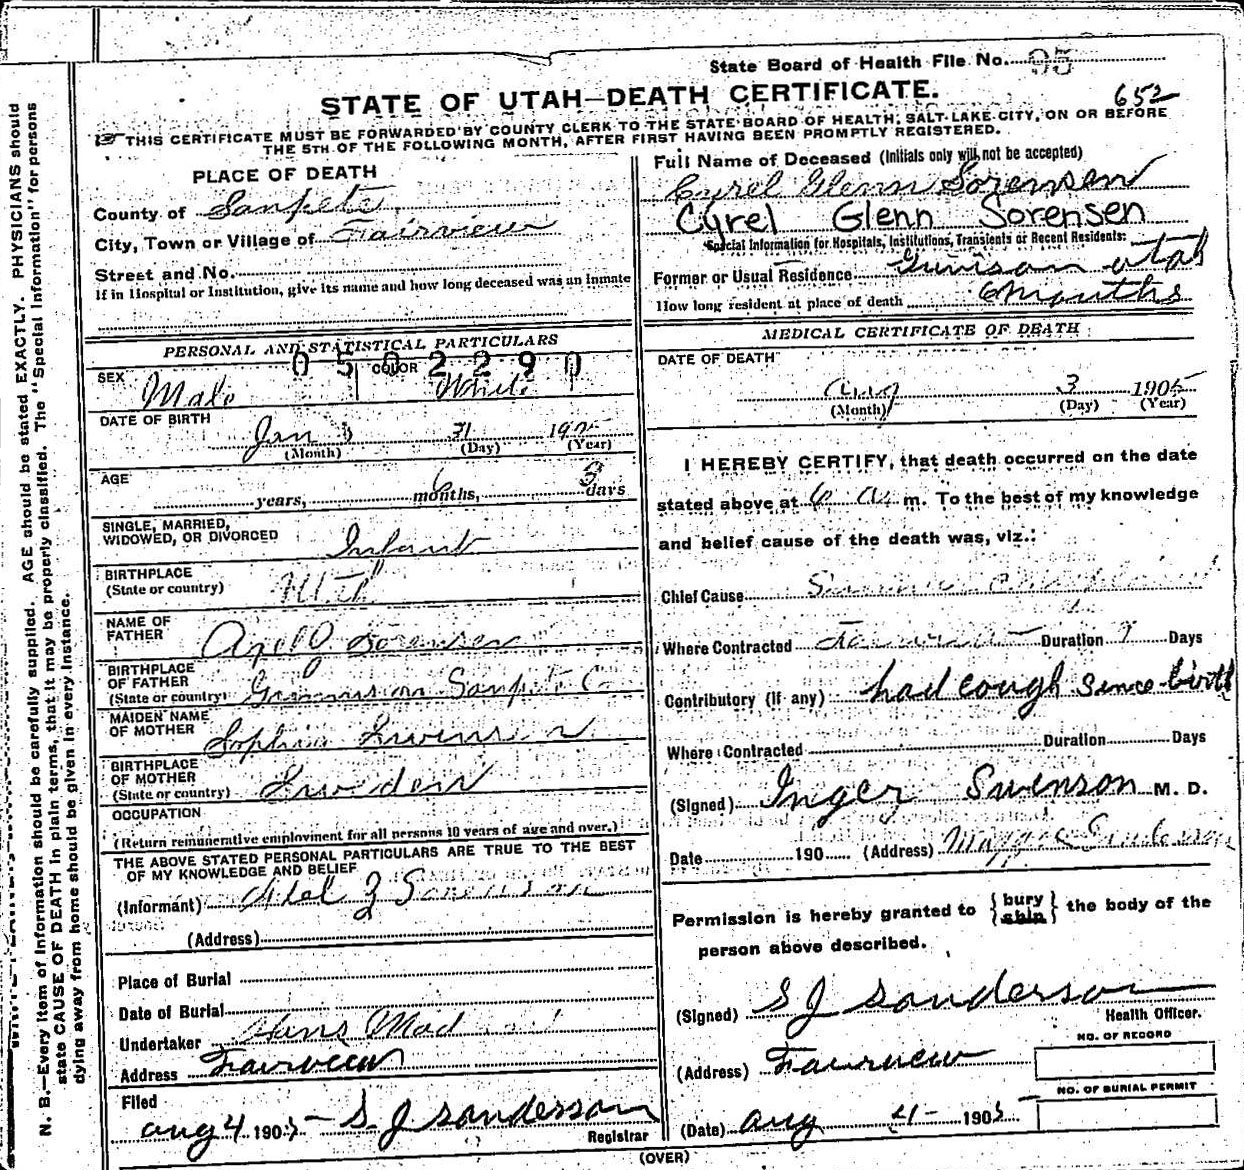 State Board of Health File No. 95
STATE OF UTAH—DEATH CERTIFICATE.
652
THIS CERTIFICATE MUST BE FORWARDED BY COUNTY CLERK TO THE STATE BOARD OF HEALTH, SALT LAKE CITY, ON OR BEFORE
THE 5TH OF THE FOLLOWING MONTH, AFTER FIRST HAVING BEEN PROMPTLY REGISTERED.
PLACE OF DEATH
County of Sanpete
City, Town or Village of Fairview
Street and No.
If in Hospital or Institution, give its name and how long deceased was an inmate
Full Name of Deceased (Initials only will not be accepted)
Cyrel Glenn Sorensen
Cyrel Glenn Sorensen
Special Information for Hospitals, Institutions, Transients or Recent Residents:
Former or Usual Residence Gunison utah
How long resident at place of death 6 months
PERSONAL AND STATISTICAL PARTICULARS
0502290
SEX Male COLOR White
DATE OF BIRTH
Jan 31 190
(Month) (Day) (Year)
AGE
years, 6 months, 3 days
SINGLE, MARRIED,
WIDOWED, OR DIVORCED Infant
BIRTHPLACE
(State or country) Utah
NAME OF
FATHER Sorensen
BIRTHPLACE
OF FATHER
(State or country) Gunnison Sanpete Co
MAIDEN NAME
OF MOTHER Sophia
BIRTHPLACE
OF MOTHER
(State or country) Sweden
OCCUPATION
(Return remunerative employment for all persons 10 years of age and over.)
THE ABOVE STATED PERSONAL PARTICULARS ARE TRUE TO THE BEST
OF MY KNOWLEDGE AND BELIEF
(Informant) Sorenson
(Address)
Place of Burial
Date of Burial
Undertaker Hans
Address Fairview
Filed
aug 4 1905 S. J Sanderson
Registrar
MEDICAL CERTIFICATE OF DEATH
DATE OF DEATH
Aug 3 1905
(Month) (Day) (Year)
I HEREBY CERTIFY, that death occurred on the date
stated above at 6 a m. To the best of my knowledge
and belief cause of the death was, viz.:
Chief Cause
Where Contracted Duration Days
Contributory (If any) had cough since birth
Where Contracted Duration Days
(Signed) Inger Swenson M. D.
Date 190 (Address)
Permission is hereby granted to {bury ship} the body of the
person above described.
(Signed) S J Sanderson
Health Officer.
(Address) Fairview
NO. OF RECORD
NO. OF BURIAL PERMIT
(Date) aug 4 - 1905
(OVER)
N. B.—Every item of Information should be carefully supplied. AGE should be stated EXACTLY. PHYSICIANS should
state CAUSE OF DEATH in plain terms, that it may be properly classified. The "Special Information" for persons
dying away from home should be given in every instance.